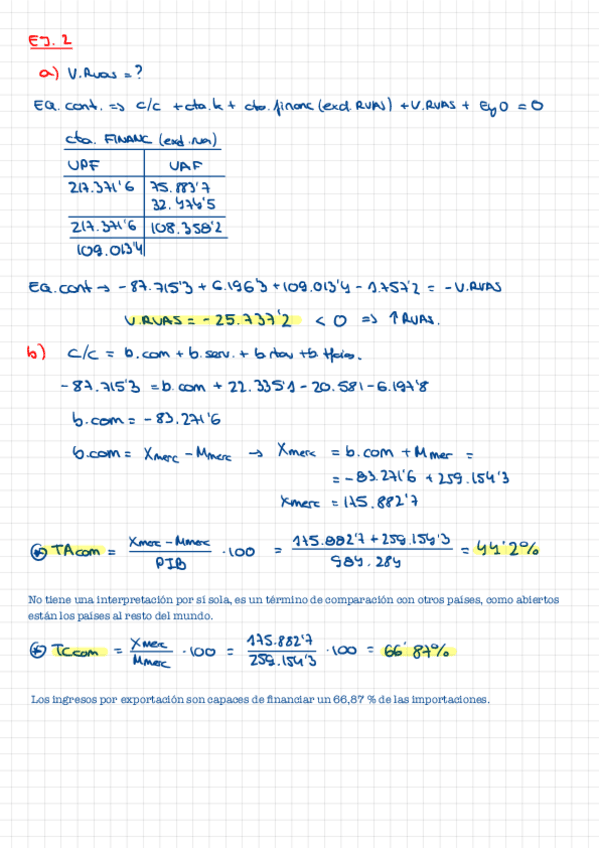 EJ. 2
a) V.Rvas = ?
EQ. cont. => c/c + cta.k + cta.financ (excl RVAS) + V.RVAS + EyO = 0
cta. FINANC (excl.rva)
VPF VAF
217.371'6 75.883'7
32.474'5
217.371'6 108.358'2
109.013'4
EQ.cont → -87.715'3 + 6.196'3 + 109.013'4 - 1.757'2 = -V.RVAS
V.RVAS = -25.737'2 < 0 => ↑RVAS.
b) c/c = b.com + b.serv. + b.rtas + b.tfcias.
-87.715'3 = b.com + 22.335'1 - 20.581 - 6.197'8
b.com = -83.271'6
b.com = Xmerc - Mmerc → Xmerc = b.com + Mmer =
= -83.271'6 + 259.154'3
Xmerc = 175.882'7
TAcom = Xmerc - Mmerc / PIB · 100 = 175.882'7 + 259.154'3 / 984.284 = 44'2%
No tiene una interpretación por sí sola, es un término de comparación con otros países, como abiertos
están los países al resto del mundo.
TCcom = Xmerc / Mmerc · 100 = 175.882'7 / 259.154'3 · 100 = 66'87%
Los ingresos por exportación son capaces de financiar un 66,87 % de las importaciones.